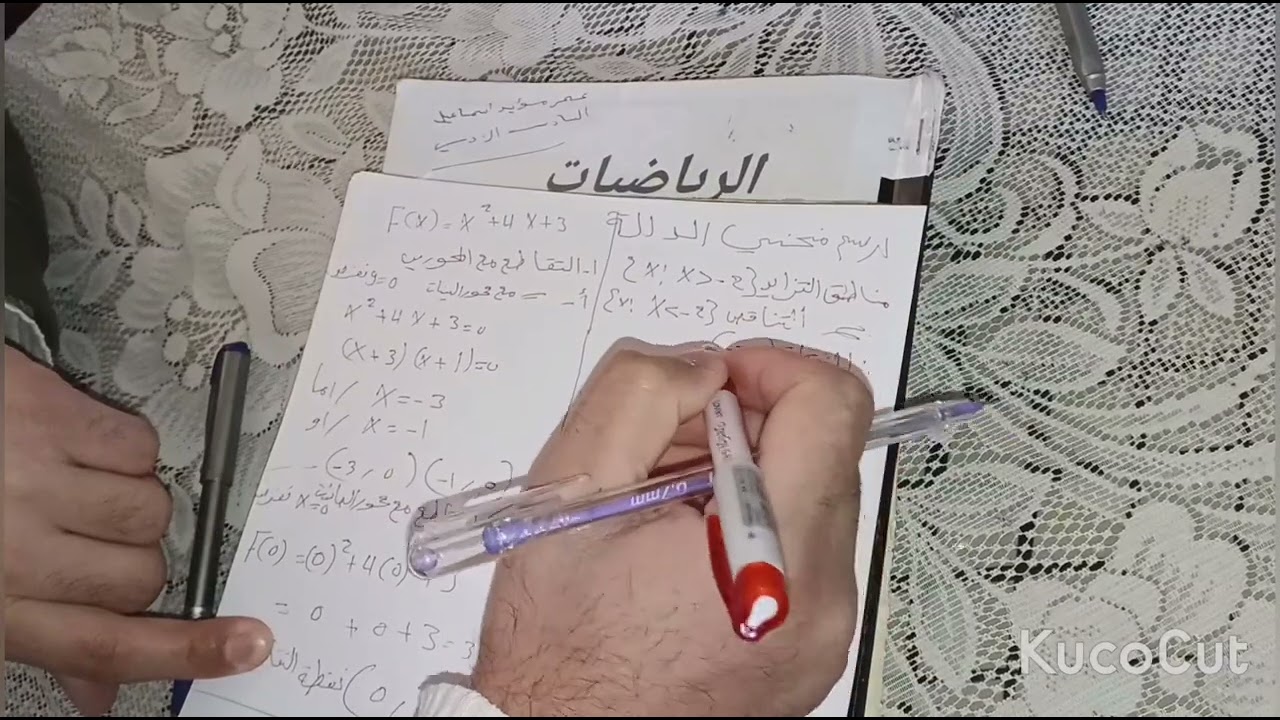 عمر مؤيد اسماعيل
السادس الادبي
الرياضيات
ارسم منحني الدالة
F(x) = x²+4x+3
1- التقاطع مع المحورين
أ- مع محور السينات ونفرض y=0
x²+4x+3=0
(x+3)(x+1)=0
اما / x=-3
او / x=-1
(-3,0) (-1,0)
مع محور الصادات نفرض x=0
F(0)=(0)²+4(0)+3
= 0 + 0 + 3 = 3
نقطة
مناطق التزايد {x: x>-2}
التناقص {x: x<-2}
0.7mm
KucoCut